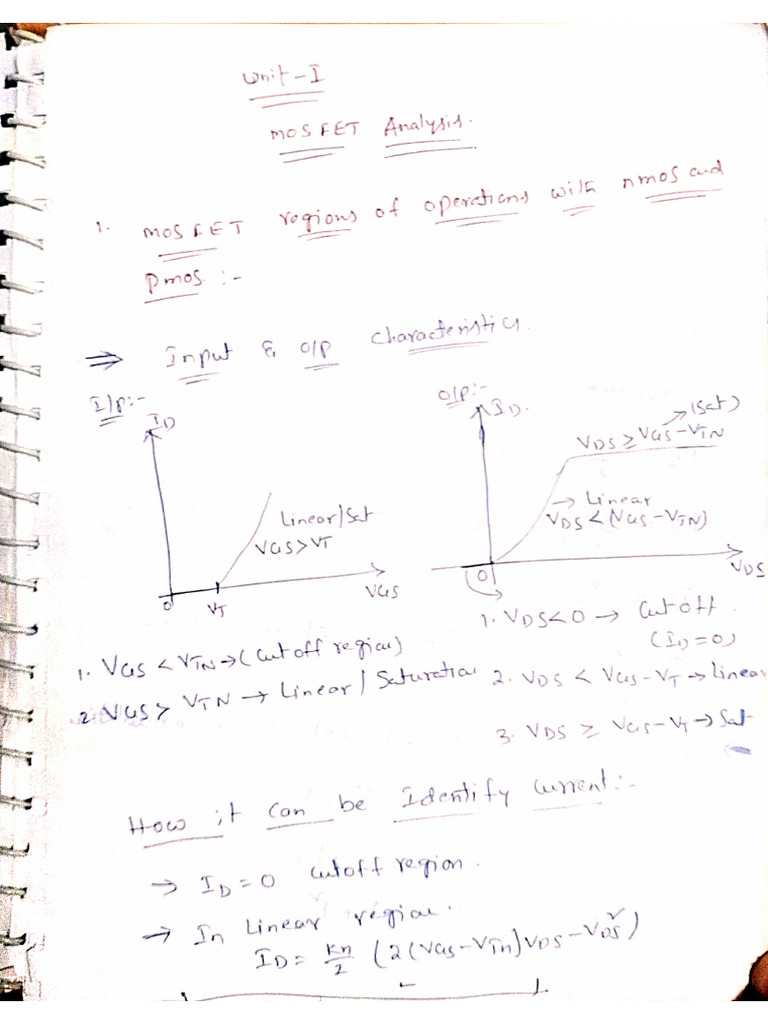 Unit-I
MOSFET Analysis.
1. MOSFET regions of operations with nmos and
Pmos :-
⇒ Input & O/P Characteristics.
I/P:-
ID
Linear/Sat
VGS>VT
0
VT
VGS
O/P:-
ID.
(Sat)
VDS ≥ VGS-VTN
→ Linear
VDS < (VGS-VTN)
0
VDS
1. VGS < VTN → (Cut off region)
2. VGS > VTN → Linear / Saturation
1. VDS<0 → Cut off
(ID=0)
2. VDS < VGS-VT → Linear
3. VDS ≥ VGS-VT → Sat
How it can be Identify Current:-
→ ID = 0 Cutoff region.
→ In Linear region.
ID = Kn/2 (2(VGS-VTn)VDS-VDS²)